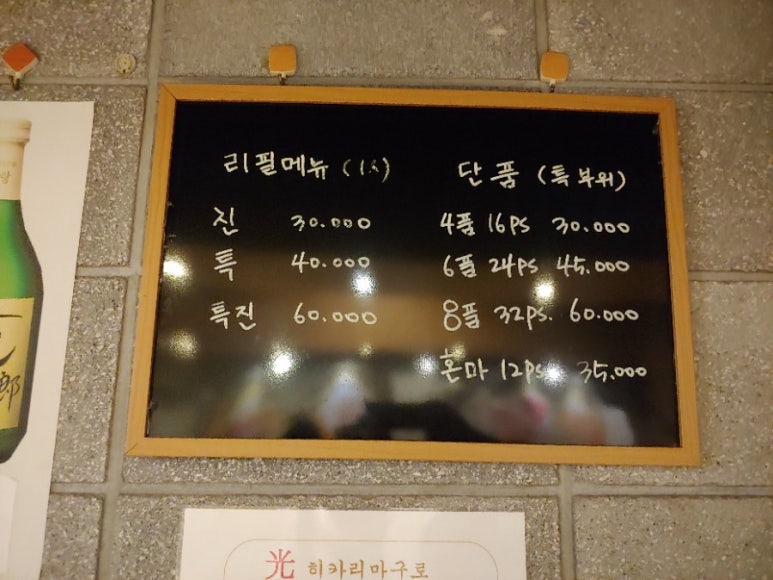 리필메뉴 (1人)
진 30.000
특 40.000
특진 60.000
단품 (특부위)
4품 16PS 30.000
6품 24PS 45.000
8품 32PS. 60.000
혼마 12PS 35.000
郎
光 히카리마구로